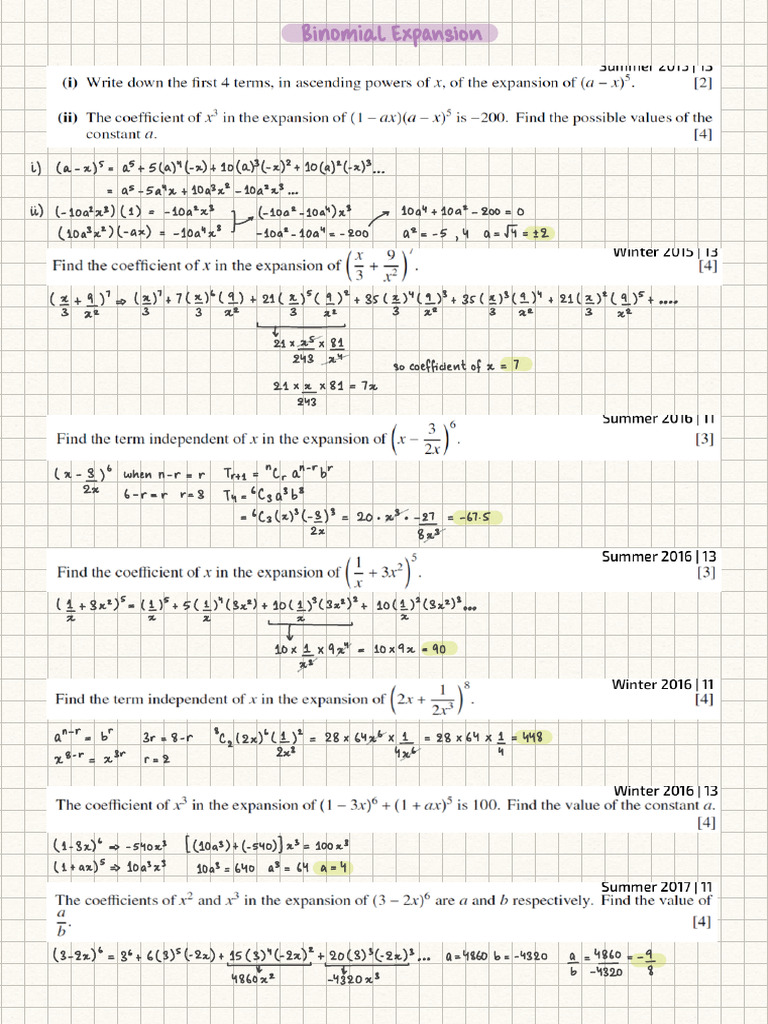 Binomial Expansion
Summer 2015 | 13
(i) Write down the first 4 terms, in ascending powers of x, of the expansion of (a − x)⁵. [2]
(ii) The coefficient of x³ in the expansion of (1 − ax)(a − x)⁵ is −200. Find the possible values of the
constant a. [4]
i) (a-x)⁵ = a⁵ + 5(a)⁴(-x) + 10(a)³(-x)² + 10(a)²(-x)³...
= a⁵ - 5a⁴x + 10a³x² - 10a²x³...
ii) (-10a²x³)(1) = -10a²x³ (-10a² - 10a⁴)x³ 10a⁴ + 10a² - 200 = 0
(10a³x²)(-ax) = -10a⁴x³ -10a² - 10a⁴ = -200 a² = -5 , 4 a = √4 = ±2
Winter 2015 | 13
Find the coefficient of x in the expansion of (x/3 + 9/x²)⁷. [4]
(x/3 + 9/x²)⁷ ⇒ (x/3)⁷ + 7(x/3)⁶(9/x²) + 21(x/3)⁵(9/x²)² + 35(x/3)⁴(9/x²)³ + 35(x/3)³(9/x²)⁴ + 21(x/3)²(9/x²)⁵ + ....
21 × x⁵/243 × 81/x⁴
so coefficient of x = 7
21 × x/243 × 81 = 7x
Summer 2016 | 11
Find the term independent of x in the expansion of (x − 3/2x)⁶. [3]
(x - 3/2x)⁶ when n-r = r Tr+1 = ⁿCr aⁿ⁻ʳ bʳ
6-r = r r = 3 T₄ = ⁶C₃ a³ b³
= ⁶C₃ (x)³ (-3/2x)³ = 20 · x³ · -27/8x³ = -67.5
Summer 2016 | 13
Find the coefficient of x in the expansion of (1/x + 3x²)⁵. [3]
(1/x + 3x²)⁵ = (1/x)⁵ + 5(1/x)⁴(3x²) + 10(1/x)³(3x²)² + 10(1/x)²(3x²)³...
10 × 1/x³ × 9x⁴ = 10 × 9x = 90
Winter 2016 | 11
Find the term independent of x in the expansion of (2x + 1/2x³)⁸. [4]
aⁿ⁻ʳ = bʳ 3r = 8-r ⁸C₂ (2x)⁶ (1/2x³)² = 28 × 64x⁶ × 1/4x⁶ = 28 × 64 × 1/4 = 448
x⁸⁻ʳ = x³ʳ r = 2
Winter 2016 | 13
The coefficient of x³ in the expansion of (1 − 3x)⁶ + (1 + ax)⁵ is 100. Find the value of the constant a.
[4]
(1-3x)⁶ ⇒ -540x³ [(10a³) + (-540)] x³ = 100x³
(1+ax)⁵ ⇒ 10a³x³ 10a³ = 640 a³ = 64 a = 4
Summer 2017 | 11
The coefficients of x² and x³ in the expansion of (3 − 2x)⁶ are a and b respectively. Find the value of
a/b. [4]
(3-2x)⁶ = 3⁶ + 6(3)⁵(-2x) + 15(3)⁴(-2x)² + 20(3)³(-2x)³... a = 4860 b = -4320 a/b = 4860/-4320 = -9/8
4860x² -4320x³